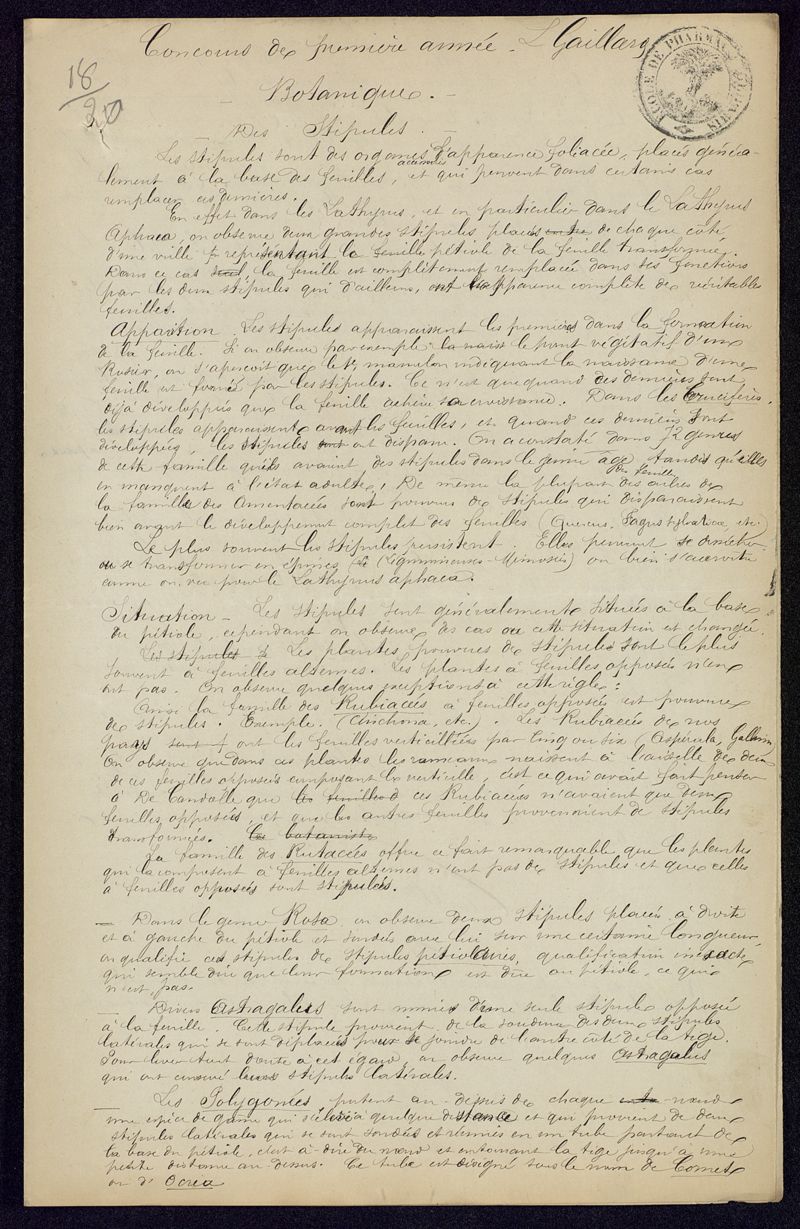 Concours de première année - L Gaillard
18/20
ECOLE DE PHARMACIE PARIS
- Botanique. -
- Des Stipules. -
Les stipules sont des organes d'apparence foliacée, placés généra-
lement à la base des feuilles, et qui peuvent dans certains cas
remplacer ces dernières.
En effet dans les Lathyrus, et en particulier dans le Lathyrus
Aphaca, on observe deux grandes stipules placées de chaque côté
d'une vrille représentant la feuille, pétiole de la feuille transformé.
Dans ce cas la feuille est complètement remplacée dans ses fonctions
par les deux stipules qui d'ailleurs, ont l'apparence complète de véritables
feuilles.
Apparition. Les stipules apparaissent les premières dans la formation
de la feuille. Si on observe par exemple la naiss le point végétatif d'un
Rosier, on s'aperçoit que le 1er mamelon indiquant la naissance d'une
feuille est formé par les stipules. Ce n'est que quand ces dernières sont
déjà développées que la feuille achève sa croissance. Dans les Crucifères,
les stipules apparaissent avant les feuilles, et quand ces dernières sont
développées, les stipules sont ont disparu. On a constaté dans genres
de cette famille qu'ils avaient des stipules dans le jeune âge, tandis qu'elles
en manquent à l'état adulte. De même la plupart des arbres de
la famille des Amentacées sont pourvus de stipules qui disparaissent
bien avant le développement complet des feuilles (Quercus, Fagus sylvatica, etc.)
Le plus souvent les stipules persistent. Elles peuvent se dessécher
ou se transformer en épines, (Légumineuses-Mimosées) ou bien s'accroître
comme on vu pour le Lathyrus aphaca.
Situation - Les stipules sont généralement situées à la base
du pétiole, cependant on observe des cas où cette situation est changée.
Les stipules Les plantes pourvues de stipules sont le plus
souvent à feuilles alternes. Les plantes à feuilles opposées n'en
ont pas. On observe quelques exceptions à cette règle:
Ainsi la famille des Rubiacées à feuilles opposées est pourvue
de stipules. Exemple. (Cinchona, etc.). Les Rubiacées de nos
pays ont les feuilles verticillées par cinq ou six (Asperula, Gallium)
On observe que dans ces plantes les rameaux naissent à l'aisselle de deux
de ces feuilles opposées composant le verticille, c'est ce qui avait fait penser
à De Candolle que les feuilles d ces Rubiacées n'avaient que deux
feuilles opposées, et que les autres feuilles provenaient de stipules
transformées. Ce botaniste
La famille des Rutacées offre ce fait remarquable que les plantes
qui la composent à feuilles alternes n'ont pas de stipules et que celles
à feuilles opposées sont stipulées.
- Dans le genre Rosa on observe deux stipules placées à droite
et à gauche du pétiole et soudées avec lui sur une certaine longueur,
on qualifie ces stipules de stipules pétiolaires, qualification inexacte
qui semble dire que leur formation est due au pétiole, ce qui
n'est pas.
- Divers Astragalus sont munis d'une seule stipule opposée
à la feuille. Cette stipule provient de la soudure des deux stipules
latérales qui se sont déplacées pour se joindre de l'autre côté de la tige.
Pour lever tout doute à cet égard, on observe quelques Astragalus
qui ont conservé leurs stipules latérales.
- Les Polygonées portent au-dessus de chaque nœud
une espèce de gaine qui s'élève à quelque distance et qui provient de deux
stipules latérales qui se sont soudées et réunies en un tube partant de
la base du pétiole, c'est à dire du nœud et entourant la tige jusqu'à une
petite distance au-dessus. Ce tube est désigné sous le nom de Cornet
ou d'Ocrea